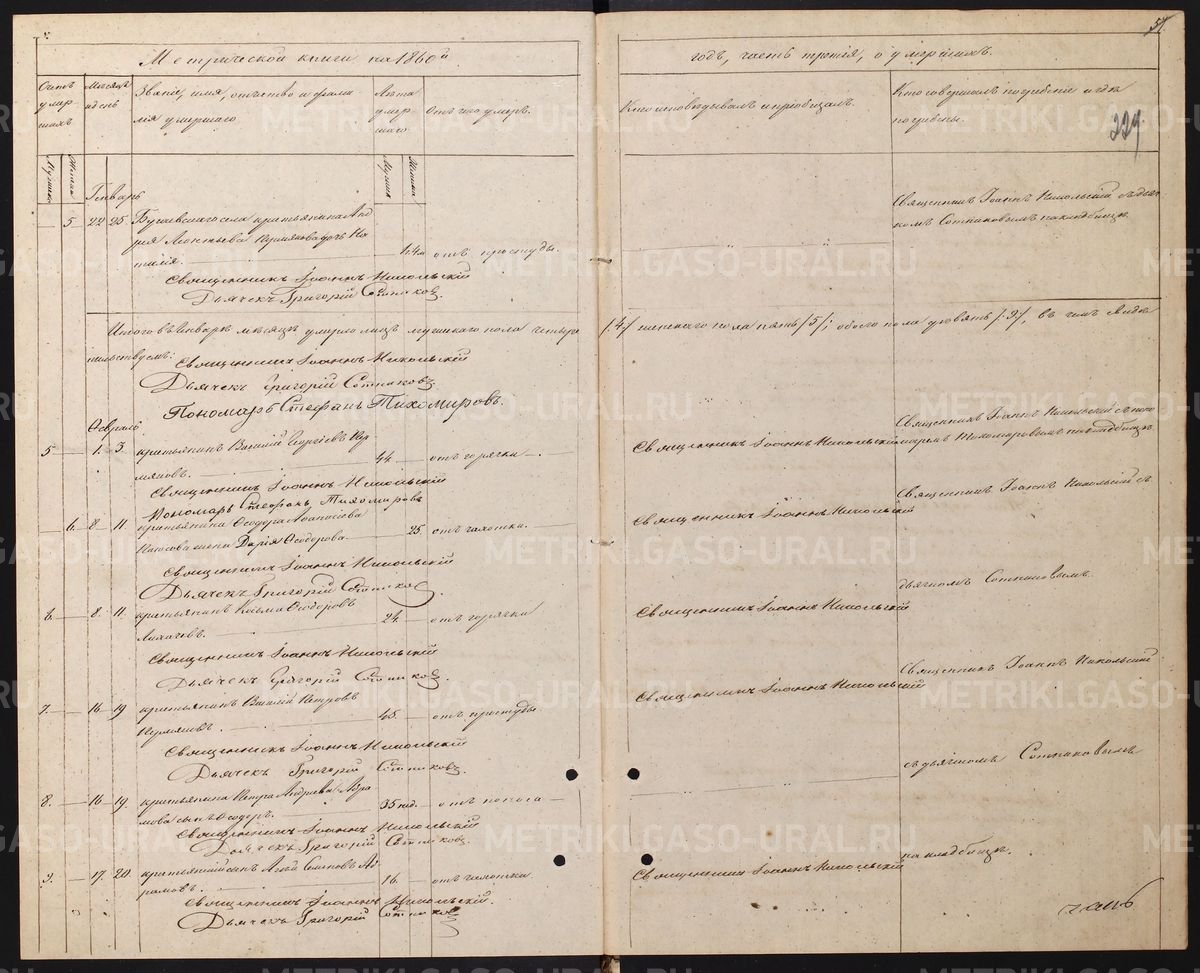 Метрической книги на 1860й
Счетъ умершихъ
Месяцъ и день
Званіе, имя, отчество и фамилія умершаго
Лета умершаго
Отъ чего умеръ.
Мужска
Женска
Мужска
Женска
Генварь
5 22 25 села крестьянина
Леонтьева дочь
отъ простуды.
Священникъ Іоаннъ Никольскій
Дьячекъ Григорій Сотниковъ.
Итого въ Генваре месяце умерло лицъ мужскаго пола четыре
Священникъ Іоаннъ Никольскій
Дьячекъ Григорій Сотниковъ
Пономарь Стефанъ Тихомировъ.
Февраль
5 1. 3. крестьянинъ
44. отъ горячки
Священникъ Іоаннъ Никольскій
Пономарь Стефанъ Тихомировъ
6. 8. 11. крестьянина Ѳеодора
жена Дарія Ѳеодорова 25. отъ чахотки.
Священникъ Іоаннъ Никольскій
Дьячекъ Григорій Сотниковъ
6. 8. 11. крестьянинъ Козьма Ѳеодоровъ
Лихачевъ. 24. отъ горячки
Священникъ Іоаннъ Никольскій
Дьячекъ Григорій Сотниковъ.
7. 16 19 крестьянинъ Петровъ
45. отъ простуды.
Священникъ Іоаннъ Никольскій
Дьячекъ Григорій Сотниковъ.
8. 16 19. крестьянина Петра Андреева
сынъ Ѳеодоръ. 35 нед. отъ поноса
Священникъ Іоаннъ Никольскій
Дьячекъ Григорій Сотниковъ.
9. 17. 20. крестьянскій сынъ
16. отъ чахотки
Священникъ Іоаннъ Никольскій.
Дьячекъ Григорій Сотниковъ
57.
годъ, часть третія, о умершихъ.
Кто исповедывалъ и пріобщалъ.
Кто совершалъ погребеніе и где погребены.
229
Священникъ Іоаннъ Никольскій съ дьячкомъ Сотниковымъ на кладбище
/4/ женскаго пола пять /5/; обоего пола девять /9/, въ чемъ свиде
тельствуемъ:
Священникъ Іоаннъ Никольскій
Священникъ Іоаннъ Никольскій съ пономаремъ Тихомировымъ на кладбище
Священникъ Іоаннъ Никольскій
Священникъ Іоаннъ Никольскій съ
Священникъ Іоаннъ Никольскій
дьячкомъ Сотниковымъ.
Священникъ Іоаннъ Никольскій
Священникъ Іоаннъ Никольскій
съ дьячкомъ Сотниковымъ
Священникъ Іоаннъ Никольскій
на кладбище.
часть
METRIKI.GASO-URAL.RU